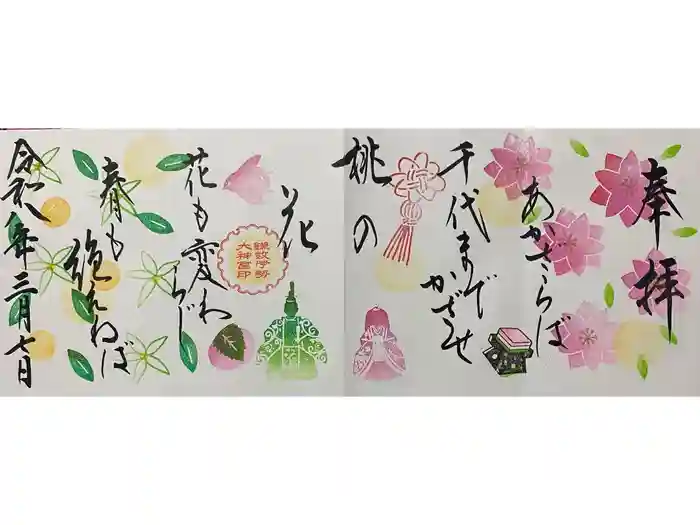 奉拝
あかざらば
千代まで
かざせ
桃の
花
鎌数伊勢
大神宮印
花も変わ
らじ
春も
絶えねば
令和八年三月七日